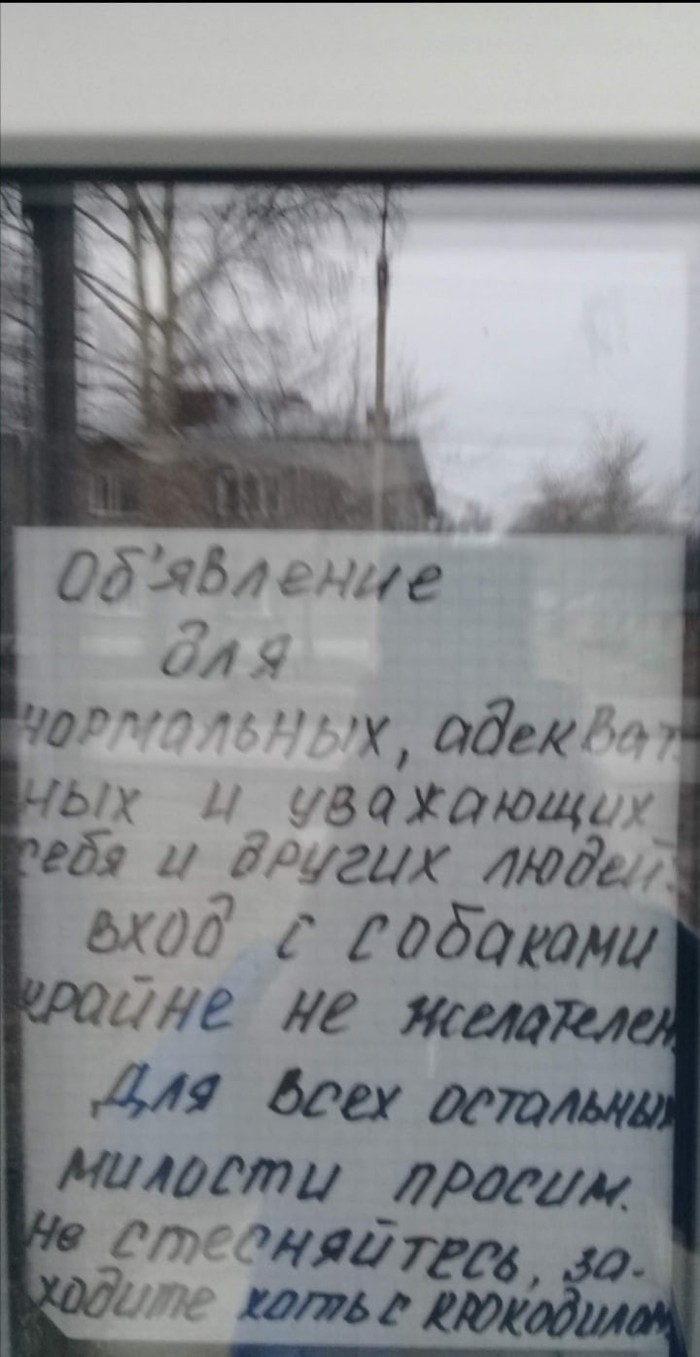 Об'явление
для
нормальных, адекват-
ных и уважающих
себя и других людей.
вход с собаками
крайне не желателен
Для всех остальных
милости просим.
не стесняйтесь, за-
ходите хоть с крокодилом